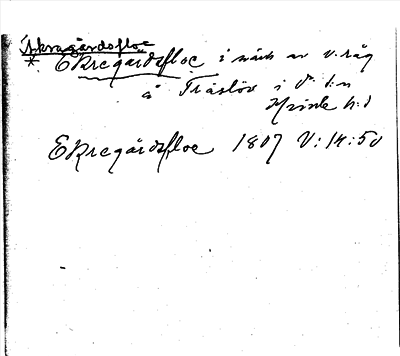 Ekregårdsfloe
* Ekregårdsfloe i närh av v. råg
å Träslöv i d:o s:n
h:d
Ekregårdsfloe 1807 V:14:50